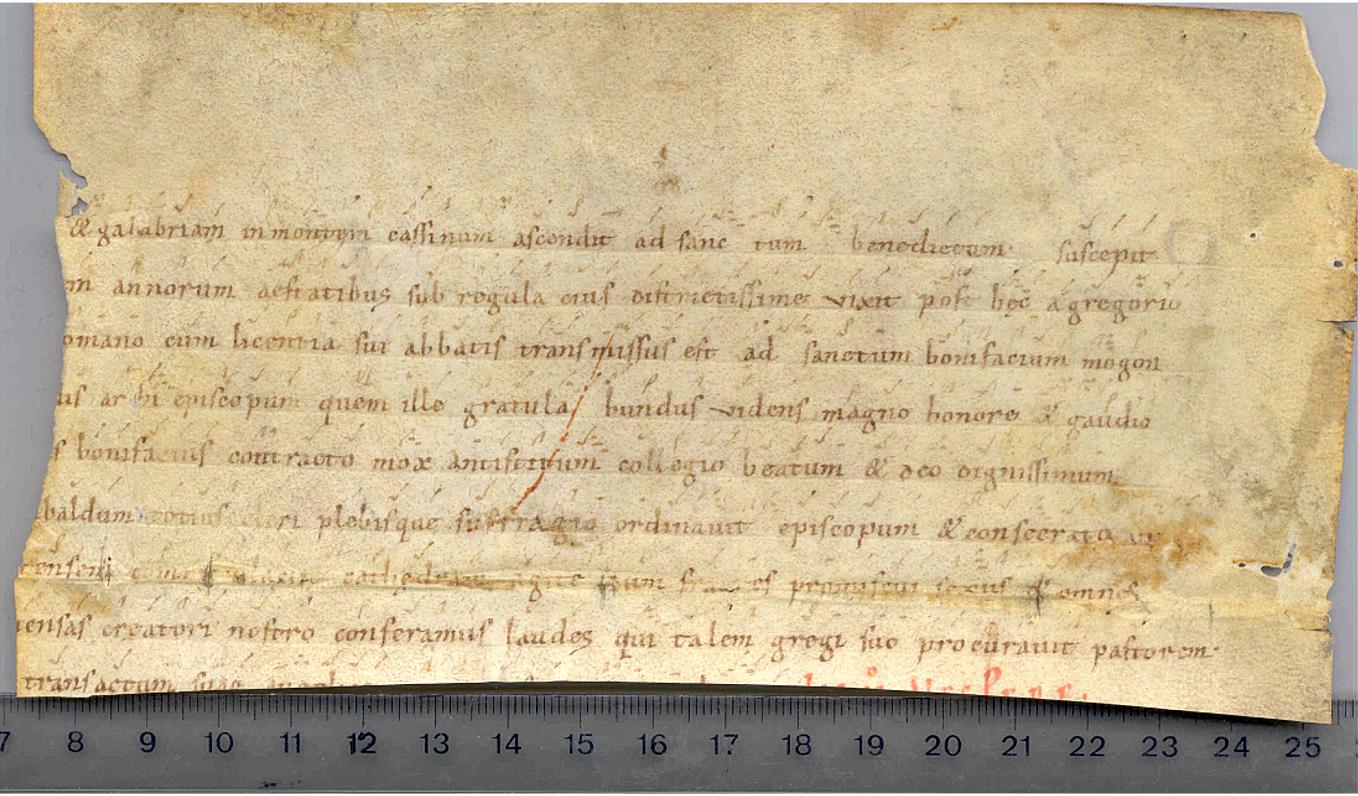 & galabriam in montem cassinum ascendit ad sanc tum benedictum suscepit
m annorum aestatibus sub regula eius districtissime vixit post hęc a gregorio
omano cum licentia sui abbatis transmissus est ad sanctum bonifacium mogon
us archi episcopum quem ille gratula bundus videns magno honore & gaudio
s bonifacius contracto mox antistitum collegio beatum & deo dignissimum
baldum totius cleri plebisque suffragio ordinavit episcopum & consecrato
censem cathedram agite cum fratres promiscui sexus & omnes
tensas creatori nostro conferamus laudes qui talem gregi suo procuravit pastorem
transactum suae